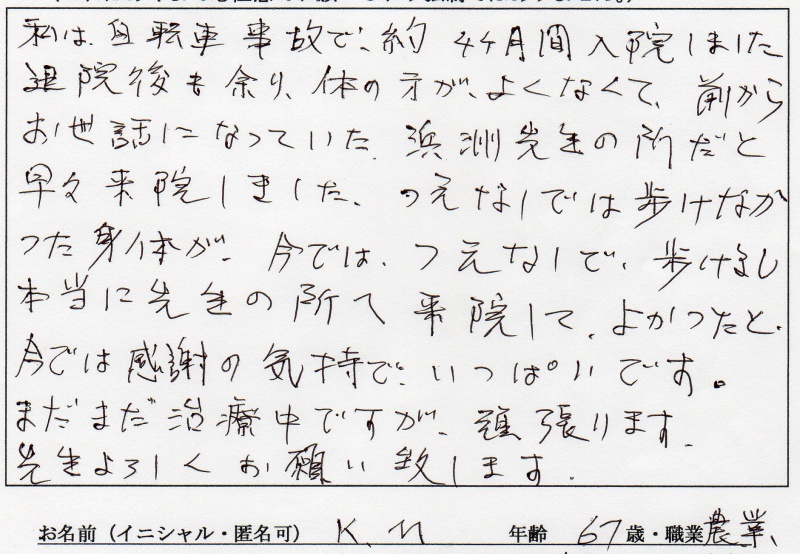 私は、自転車事故で、約 4ヶ月間入院しました
退院後も余り、体の方が、よくなくて、前から
お世話になっていた、浜洲先生の所だと
早々来院しました、つえなしでは歩けなか
った身体が、今では、つえなしで、歩けるし
本当に先生の所へ来院して、よかったと、
今では感謝の気持で、いっぱいです。
まだまだ治療中ですが、頑張ります、
先生よろしくお願い致します。
お名前（イニシャル・匿名可） K、M 年齢 67歳・職業 農業、